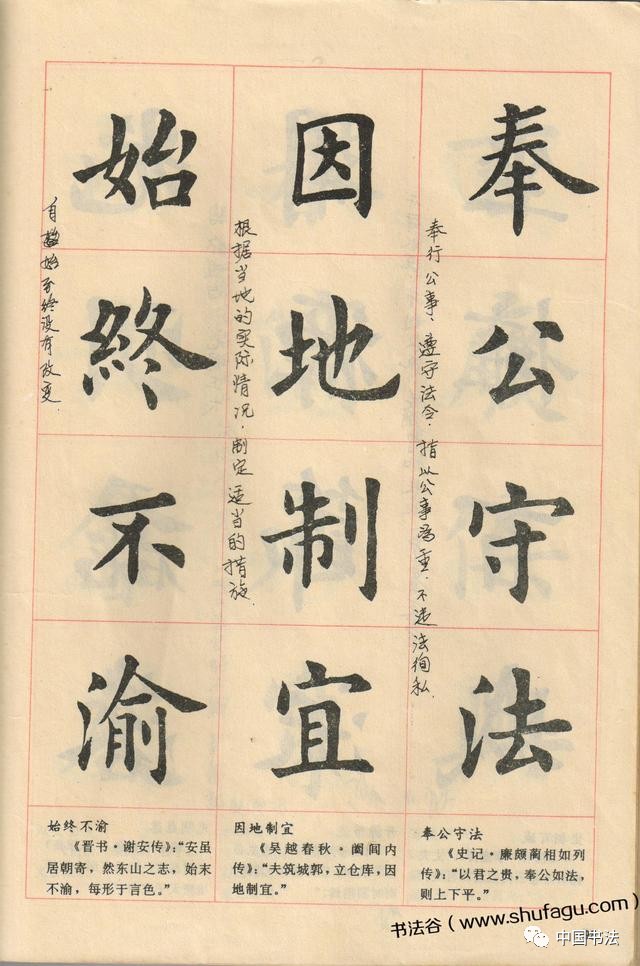 奉公守法
奉行公事、遵守法令.指以公事為重.不违法徇私.
因地制宜
根据当地的实际情况.制定适当的措施.
始終不渝
自始至终没有改变.
奉公守法
《史记·廉颇蔺相如列
传》:“以君之贵，奉公如法，
则上下平。”
因地制宜
《吴越春秋·阖闾内
传》:“夫筑城郭，立仓库，因
地制宜。”
始终不渝
《晋书·谢安传》:“安虽
居朝寄，然东山之志，始末
不渝，每形于言色。”
书法谷（www.shufagu.com）
中国书法